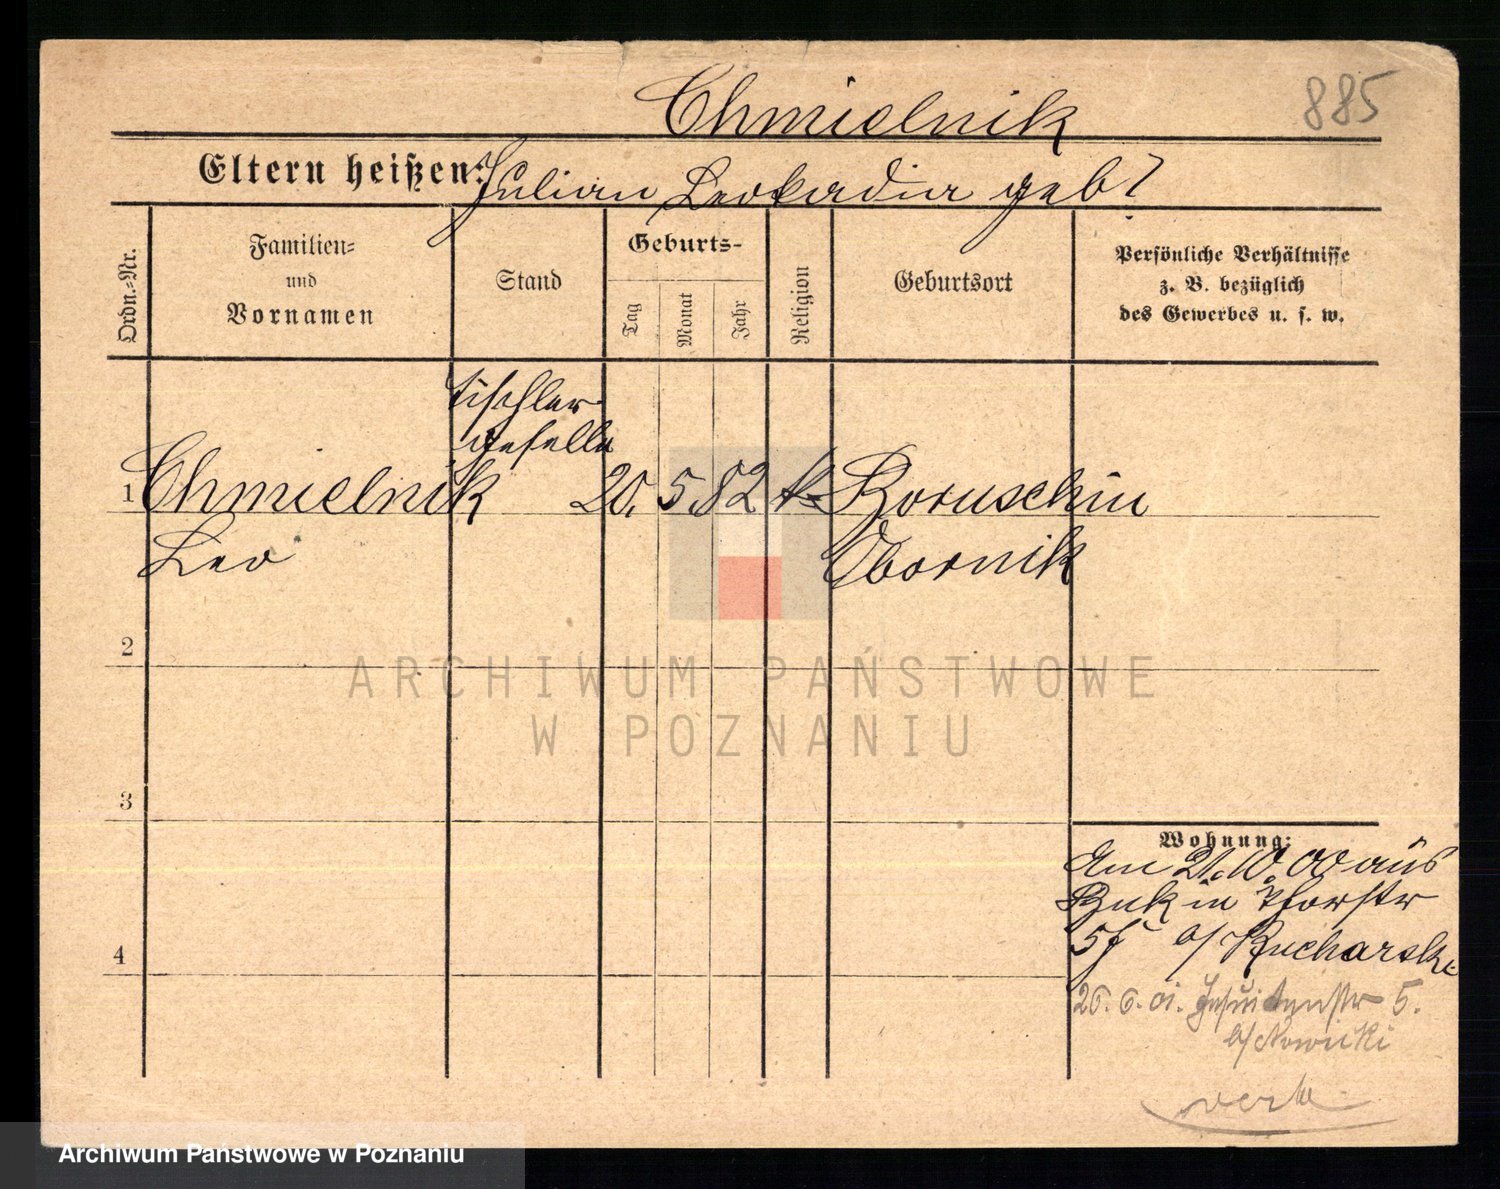 Chmielnik
885
Eltern heißen: Julian Leokadia geb?
Ordn.-Nr.
Familien-
und
Vornamen
Stand
Geburts-
Tag
Monat
Jahr
Religion
Geburtsort
Persönliche Verhältnisse
z. B. bezüglich
des Gewerbes u. s. w.
Tischler-
geselle
1 Chmielnik 20. 5. 82 k. Boruschin
Leo Obornik
2
3
4
Wohnung:
Am 21.10.00 aus
Buk in
b/ Kucharski
26.6.01. Jesuitenstr 5.
b/ Nowicki
ARCHIWUM PAŃSTWOWE
W POZNANIU
Archiwum Państwowe w Poznaniu